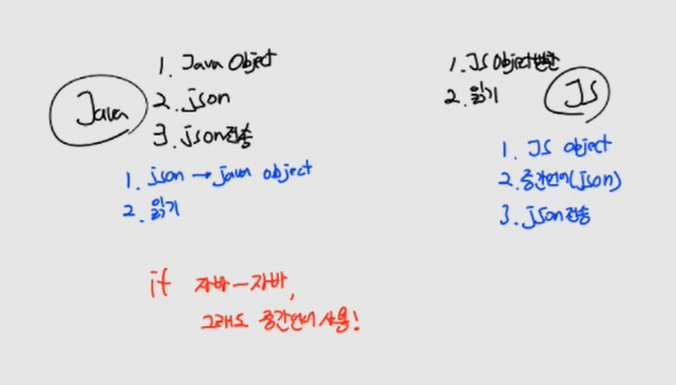 Java
1. Java Object
2. json
3. json전송
1. json → java object
2. 읽기
1. JS Object변환
2. 읽기
JS
1. JS object
2. 중간언어(json)
3. json전송
if 자바-자바,
그래도 중간언어 사용!